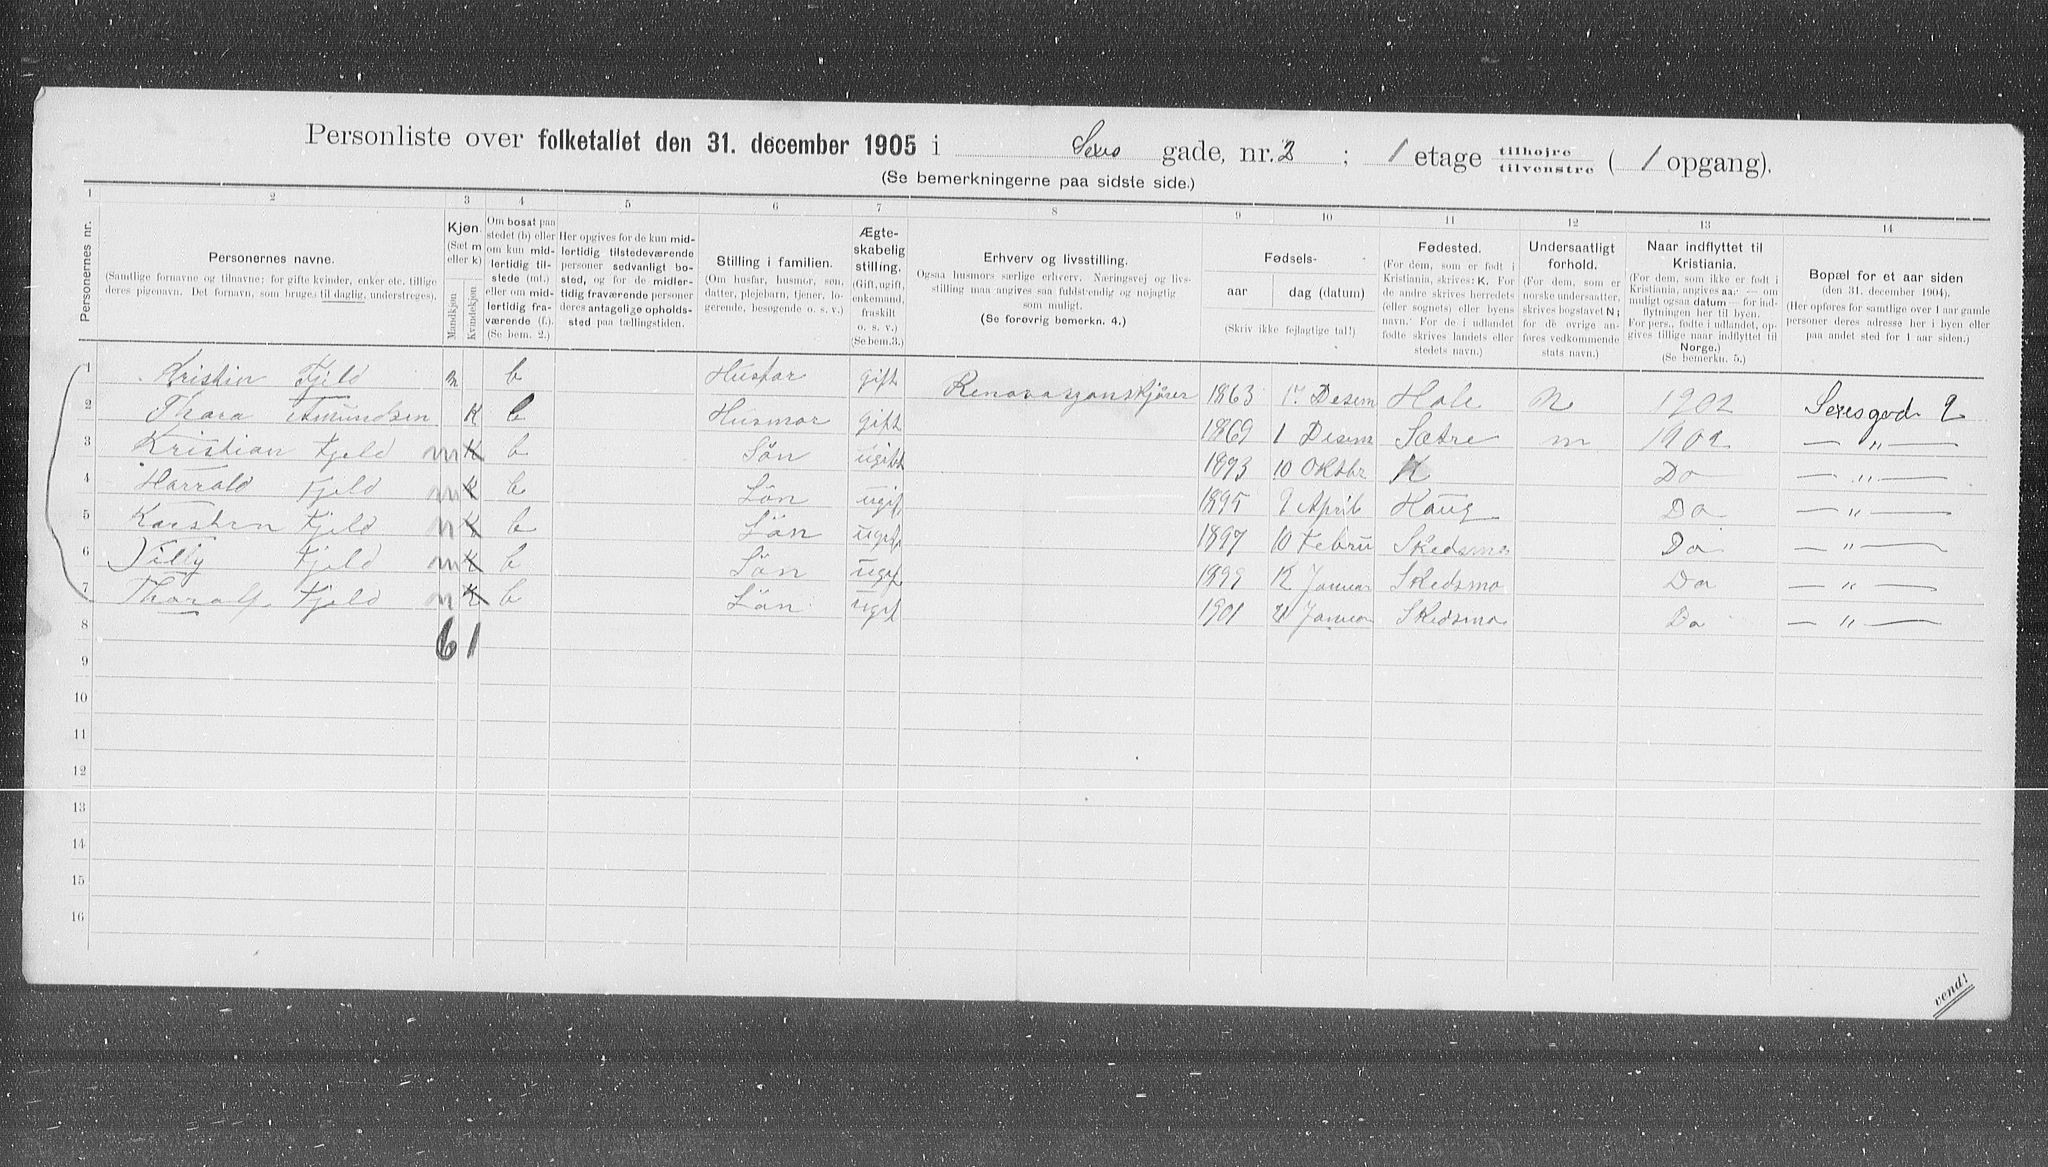 Personliste over folketallet den 31. december 1905 i Sexes gade, nr. 2 ; 1 etage tilhøjre tilvenstre ( 1 opgang).
(Se bemerkningerne paa sidste side.)
1 2 3 4 5 6 7 8 9 10 11 12 13 14
Personernes nr.
Personernes navne.
(Samtlige fornavne og tilnavne; for gifte kvinder, enker etc. tillige deres pigenavn. Det fornavn, som bruges til daglig, understreges).
Kjøn.
(Sæt m eller k)
Mandkjøn
Kvindekjøn
Om bosat paa stedet (b) eller om kun midlertidig tilstede (mt.) eller om midlertidig fraværende (f.) (Se bem. 2.)
Her opgives for de kun midlertidig tilstedeværende personer sedvanligt bosted, og for de midlertidig fraværende personer deres antagelige opholdssted paa tællingstiden.
Stilling i familien.
(Om husfar, husmor, søn, datter, plejebarn, tjener, logerende, besøgende o. s. v.)
Ægteskabelig stilling.
(Gift, ugift, enkemand, fraskilt o. s. v.)
(Se bem. 3.)
Erhverv og livsstilling.
Ogsaa husmors særlige erhverv. Næringsvej og livsstilling maa angives saa fuldstendig og nøjagtig som muligt.
(Se forøvrig bemerkn. 4.)
Fødsels-
aar
dag (datum)
(Skriv ikke fejlagtige tal!)
Fødested.
(For dem, som er født i Kristiania, skrives: K. For de andre skrives herredets (eller sognets) eller byens navn. For de i udlandet fødte skrives landets eller stedets navn.)
Undersaatligt forhold.
(For dem, som er norske undersaatter, skrives bogstavet N; for de øvrige anføres vedkommende stats navn.)
Naar indflyttet til Kristiania.
(For dem, som ikke er født i Kristiania, angives aar — om muligt ogsaa datum — for indflytningen her til byen. For pers., fødte i udlandet, opgives tillige naar indflyttet til Norge.)
(Se bemerkn. 5.)
Bopæl for et aar siden
(den 31. december 1904).
(Her opføres for samtlige over 1 aar gamle personer deres adresse her i byen eller paa andet sted for 1 aar siden.)
1 Kristin Fjeld m b Husfar gift Renovasjonskjører 1863 17 Desem Hole N 1902 Sexesgad 2
2 Thora Amundsen K b Husmor gift 1869 1 Desem Sætre n 1902 — " —
3 Kristian Fjeld m K b Sön ugift 1893 10 Oktbr K Do — " —
4 Harrald Fjeld m K b Sön ugif 1895 9 April Haug Do — " —
5 Karsten Fjeld m K b Sön ugif 1897 10 Febru Skedsmo Do — " —
6 Villy Fjeld m K b Sön ugif 1899 Januar Skedsmo Do — " —
7 Tharalf Fjeld m K b Sön ugif 1901 Januar Skedsmo Do — " —
8 6 1
9
10
11
12
13
14
15
16
vend!